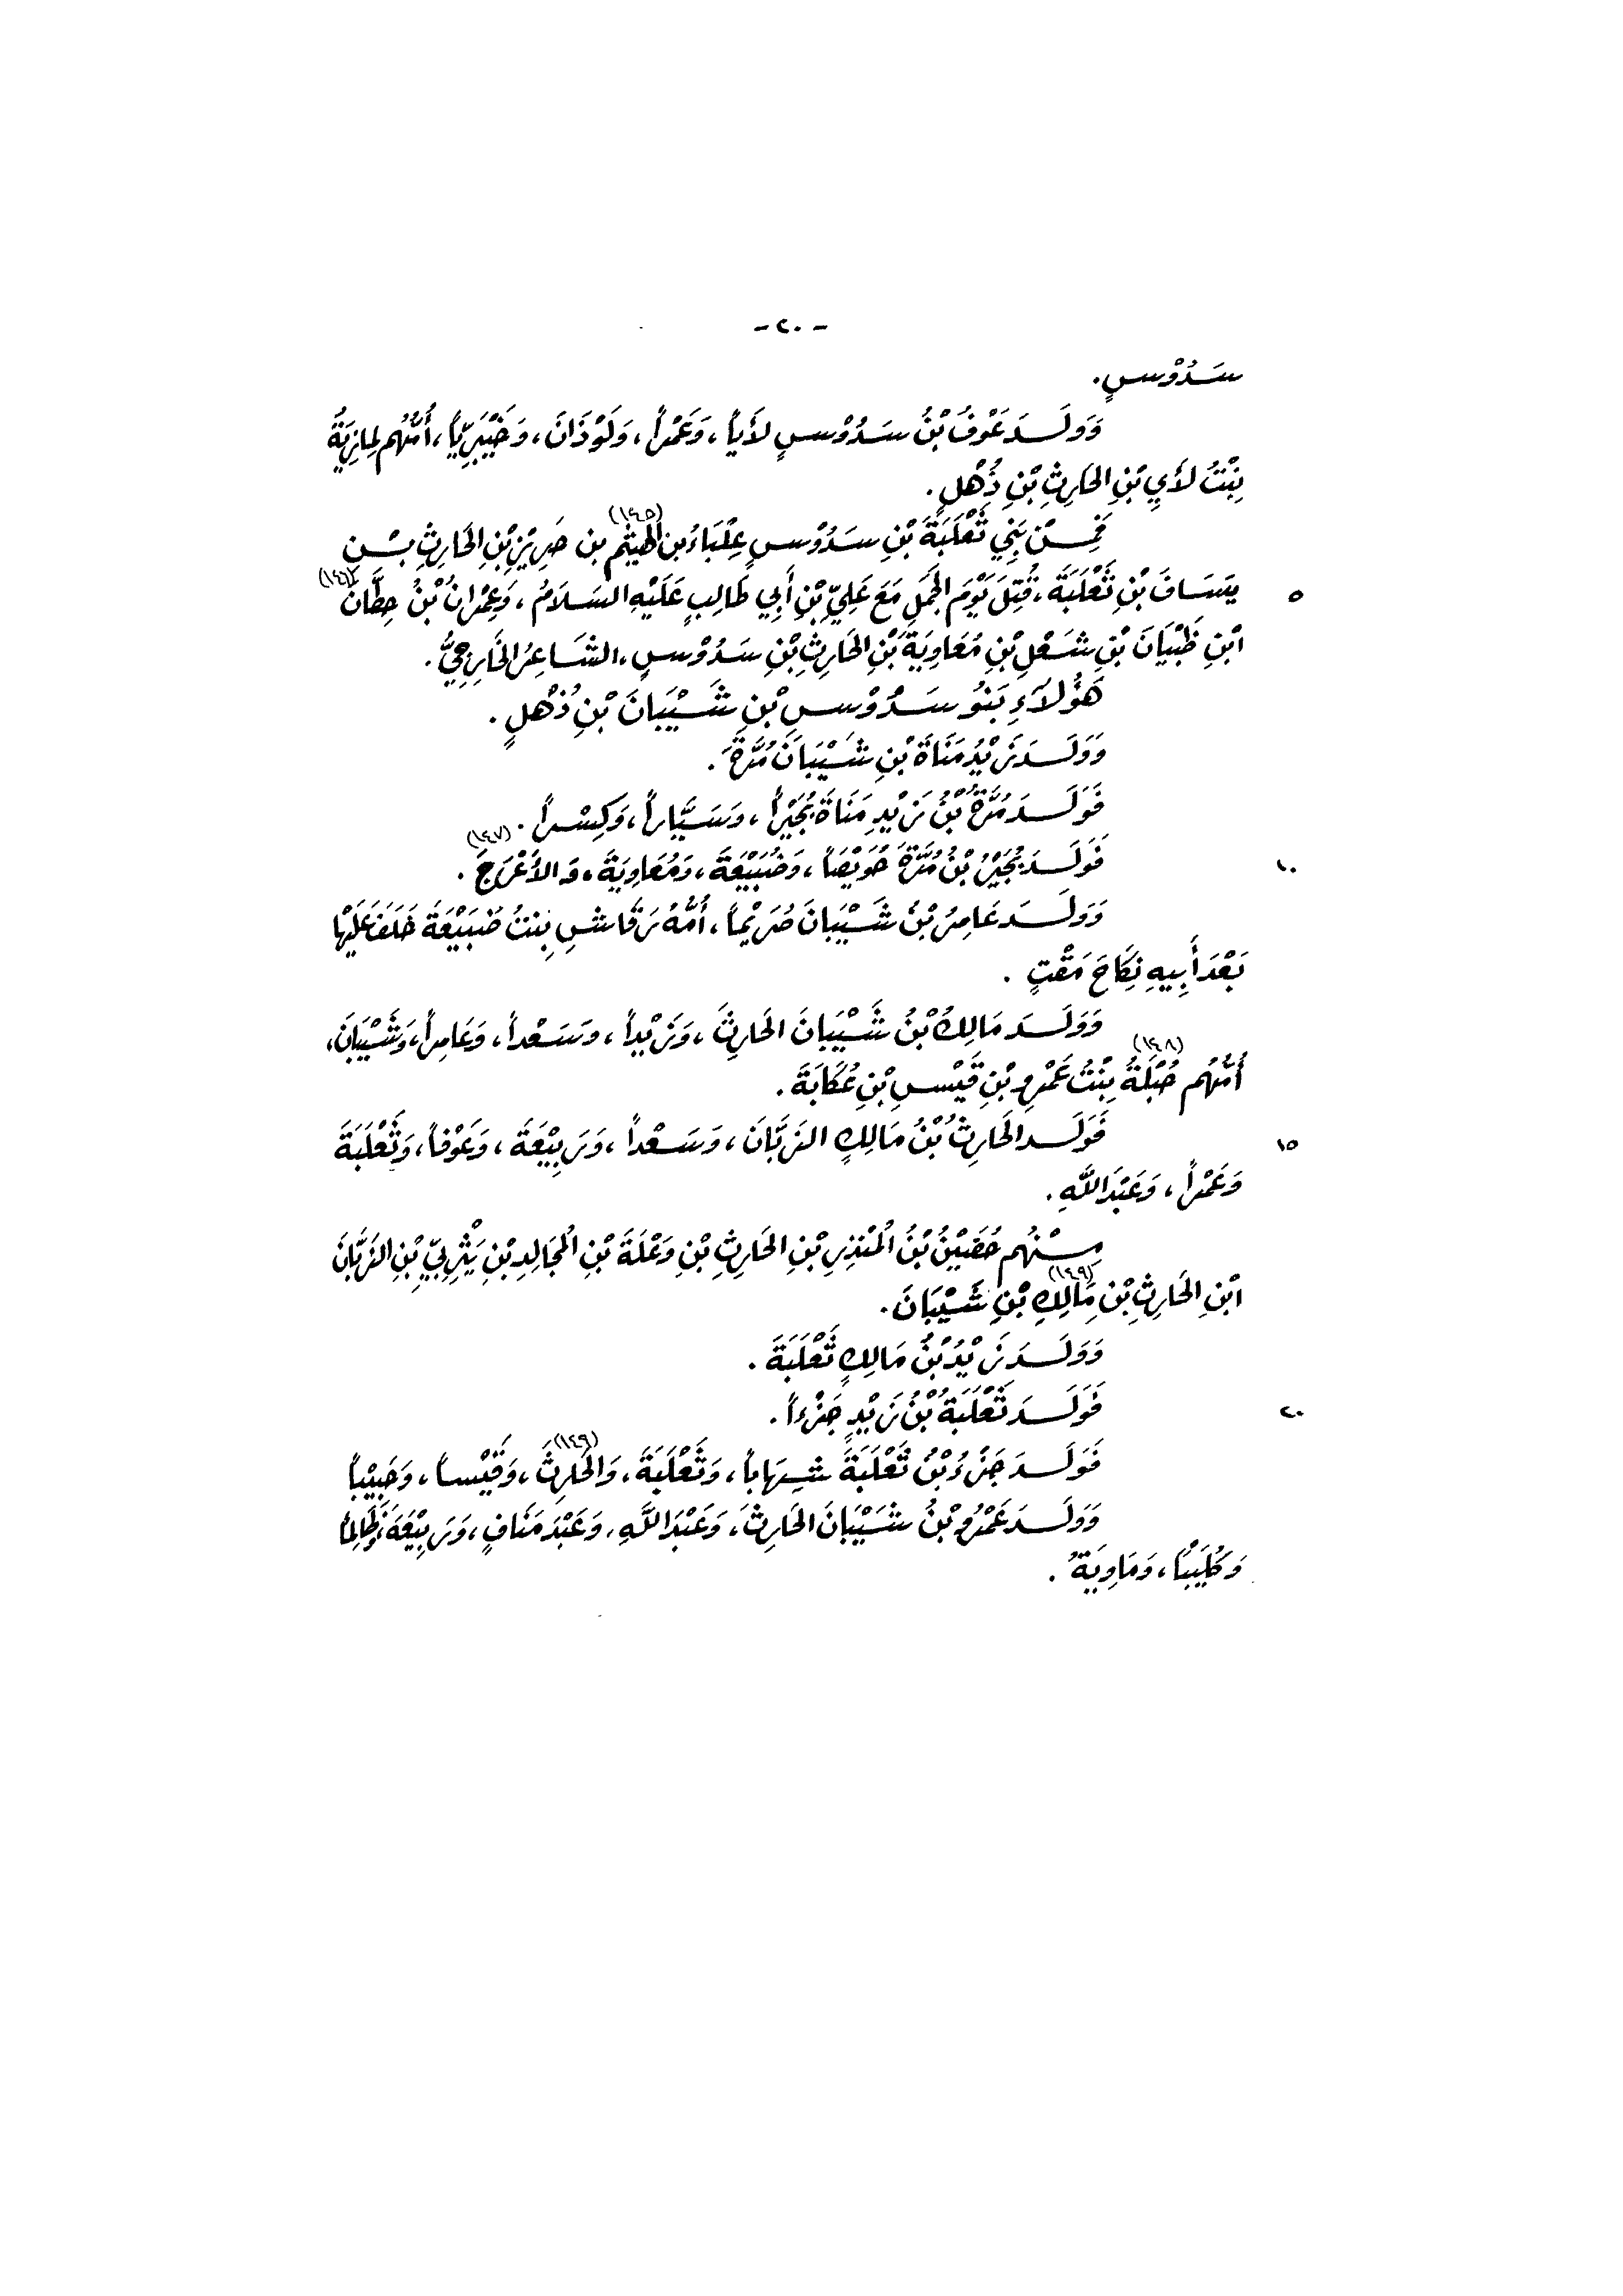 - ٢٠ -
سَدُوْسٍ.
وَوَلَدَ عَوْفُ بْنُ سَدُوْسٍ لأَياً، وَعَمْراً، وَلَوْذَانَ، وَخَيْبَرِيّاً، أُمُّهُم لِمازِنِيَّةُ
بِنْتُ لأَيِ بْنِ الحَارِثِ بْنِ ذُهْلٍ.
فَمِنْ بَنِي ثَعْلَبَةَ بْنِ سَدُوْسٍ عِلْبَاءُ بن الهَيْثَم (١٤٥) بن جَرِيْرِ بْنِ الحَارِثِ بْنِ
٥ يَسَافَ بْنِ ثَعْلَبَةَ، قُتِلَ يَوْمَ الجَمَلِ مَعَ عَلِيّ بْنِ أَبِي طَالِبٍ عَلَيْهِ السَلَامُ، وَعِمْرانُ بْنُ حِطَّانَ (١٤٦)
ابْنِ ظَبْيَانَ بْنِ شَعْلِ بْنِ مُعَاوِيَةَ بْنِ الحَارِثِ بْنِ سَدُوْسٍ، الشَاعِرُ الخَارِجِيُّ.
هَؤُلَآءِ بَنُو سَدُوْسِ بْنِ شَيْبَانَ بْنِ ذُهْلٍ.
وَوَلَدَ زَيْدُ مَنَاةَ بْنِ شَيْبَانَ مُرَّةَ.
فَوَلَدَ مُرَّةُ بْنُ زَيْدِ مَنَاةَ بُجَيْراً، وَسَيَّاراً، وَكِسْراً.
١٠ فَوَلَدَ بُجَيْرُ بْنُ مُرَّةَ حَوِيْصاً، وَضُبَيْعَةَ، وَمُعَاوِيَةَ، وَالأَعْرَجَ (١٤٧).
وَوَلَدَ عَامِرُ بْنُ شَيْبَانَ صُرَيْماً، أُمُّهُ رَقَاشِ بِنتُ ضُبَيْعَةَ خَلَفَ عَلَيْهَا
بَعْدَ أَبِيهِ نِكَاحَ مَقْتٍ.
وَوَلَدَ مَالِكُ بْنُ شَيْبَانَ الحَارِثَ، وَزَيْداً، وَسَعْداً، وَعَامِراً، وَشَيْبَانَ،
أُمُّهُم حُبْلَةُ (١٤٨) بِنْتُ عَمْرِو بْنِ قَيْسِ بْنِ عُكَابَةَ.
١٥ فَوَلَد الحَارِثُ بْنُ مَالِكٍ الزَبَّانَ، وَسَعْداً، وَرَبِيْعَةَ، وَعَوْفاً، وَثَعْلَبَةَ
وَعَمْراً، وَعَبْدَ اللَّهِ.
مِنْهُم حُضَيْنُ بْنُ المُنْذِرِ بْنِ الحَارِثِ بْنِ وَعْلَةَ بْنِ المُجَالِدِ بْنِ يَثْرِبِيّ بْنِ الزَبَّانَ
ابْنِ الحَارِثِ بْنِ مَالِكِ (١٤٩) بْنِ شَيْبَانَ.
وَوَلَدَ زَيْدُ بْنُ مَالِكٍ ثَعْلَبَةَ.
٢٠ فَوَلَدَ ثَعْلَبَةُ بْنُ زَيْدٍ جَزْءاً.
فَوَلَدَ جَزْءُ بْنُ ثَعْلَبَةَ شِهَاباً، وَثَعْلَبَةَ، وَالحَارِثَ (١٤٩)، وَقَيْساً، وَحَبِيْباً
وَوَلَدَ عَمْرُو بْنُ شَيْبَانَ الحَارِثَ، وَعَبْدَ اللَّهِ، وَعَبْدَ مَنَافٍ، وَرَبِيْعَةَ، وَظَالِماً
وَكُلَيْباً، وَمَاوِيَةُ.